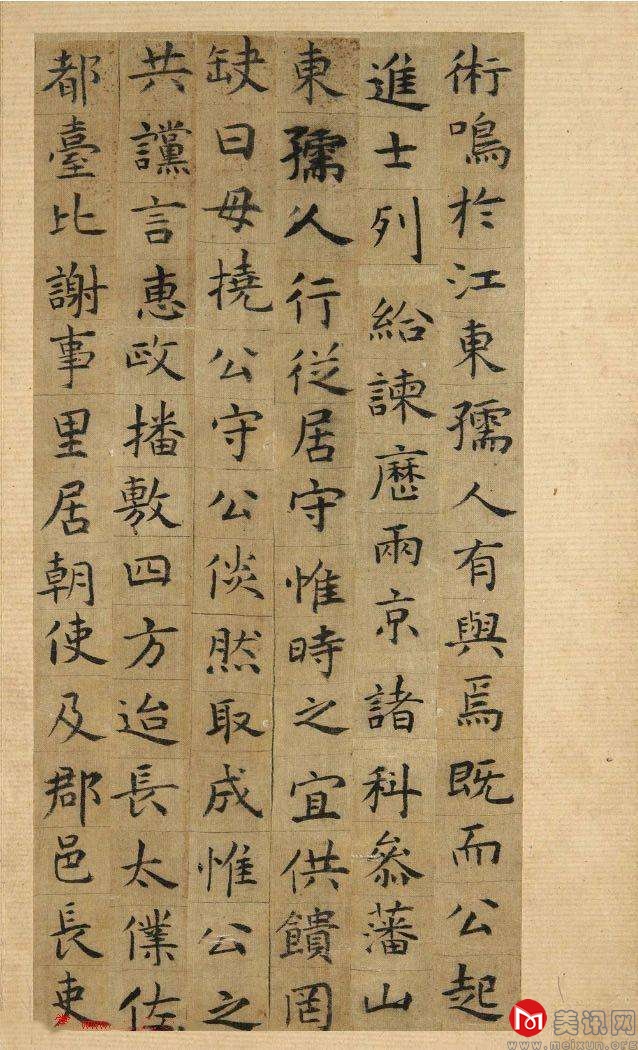 術鳴於江東孺人有與焉既而公起
進士列給諫歷兩京諸科叅藩山
東孺人行從居守惟時之宜供饋罔
缺曰毋撓公守公倓然取成惟公之
共讜言惠政播敷四方迨長太僕佐
都臺比謝事里居朝使及郡邑長吏
美讯网
www.meixun.org